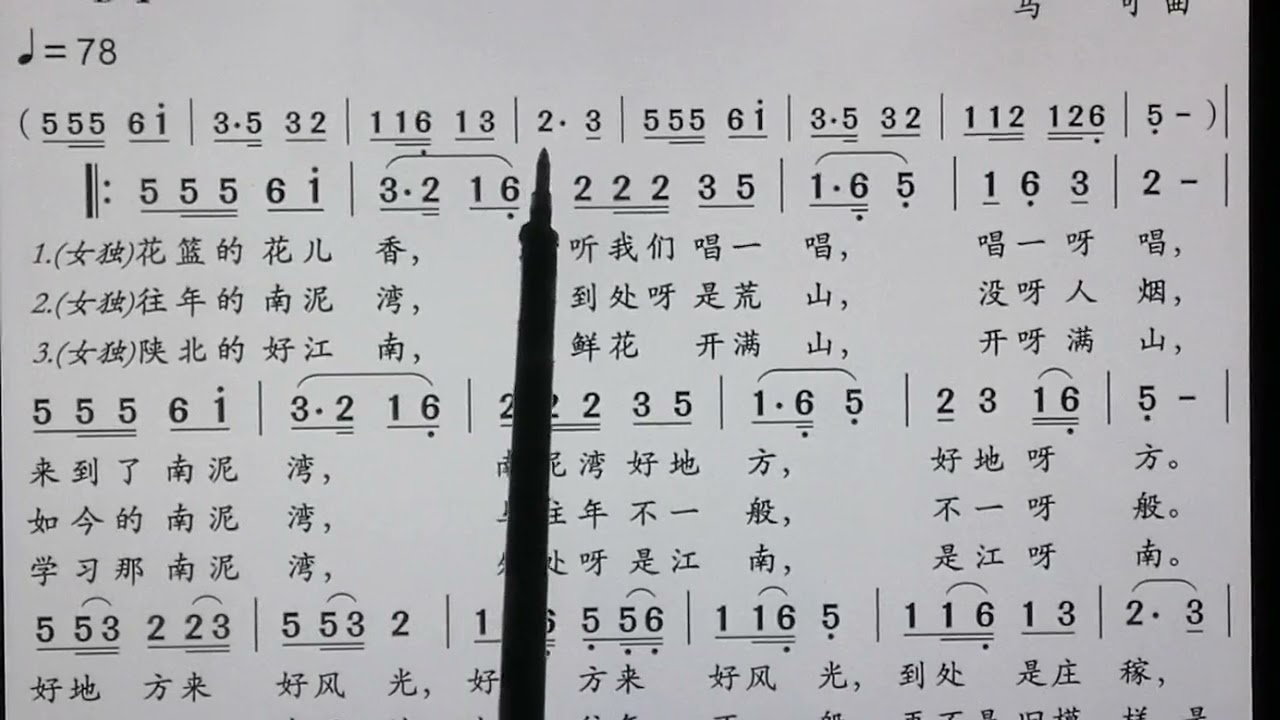 曲
♩=78
(5 5 5 6 i | 3·5 3 2 | 1 1 6 1 3 | 2· 3 | 5 5 5 6 i | 3·5 3 2 | 1 1 2 1 2 6 | 5 - )|
‖: 5 5 5 6 i | 3·2 1 6 2 2 2 3 5 | 1·6 5 | 1 6 3 | 2 - |
1.(女独)花篮的花儿香, 听我们唱一唱, 唱一呀唱,
2.(女独)往年的南泥湾, 到处呀是荒山, 没呀人烟,
3.(女独)陕北的好江南, 鲜花开满山, 开呀满山,
5 5 5 6 i | 3·2 1 6 | 2 2 2 3 5 | 1·6 5 | 2 3 1 6 | 5 - |
来到了南泥湾, 南泥湾好地方, 好地呀方。
如今的南泥湾, 往年不一般, 不一呀般。
学习那南泥湾, 处呀是江南, 是江呀南。
5 5 3 2 2 3 | 5 5 3 2 | 1 6 5 5 6 | 1 1 6 5 | 1 1 6 1 3 | 2· 3 |
好地方来好风光, 好方来好风光, 到处是庄稼,